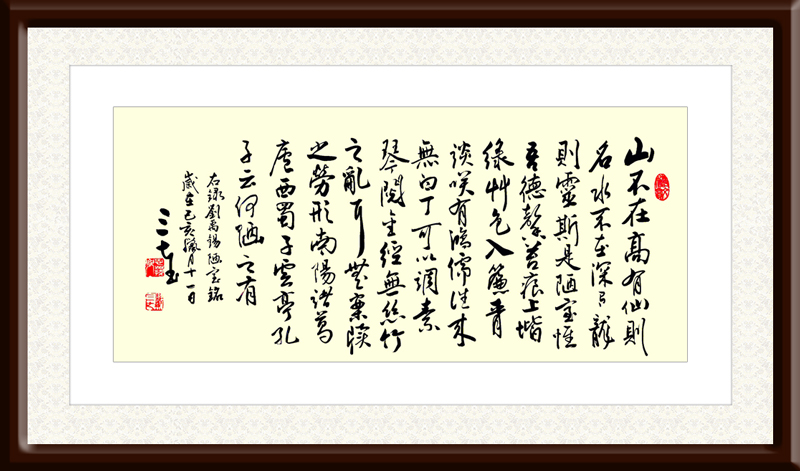 山不在高有仙則
名水不在深有龍
則靈斯是陋室惟
吾德馨苔痕上堦
綠艸色入簾青
談咲有鴻儒往来
無白丁可以調素
琴閱金經無絲竹
之亂耳無案牘
之勞形南陽諸葛
廬西蜀子雲亭孔
子云何陋之有
右錄劉禹錫陋室銘
歲在己亥臘月十一日